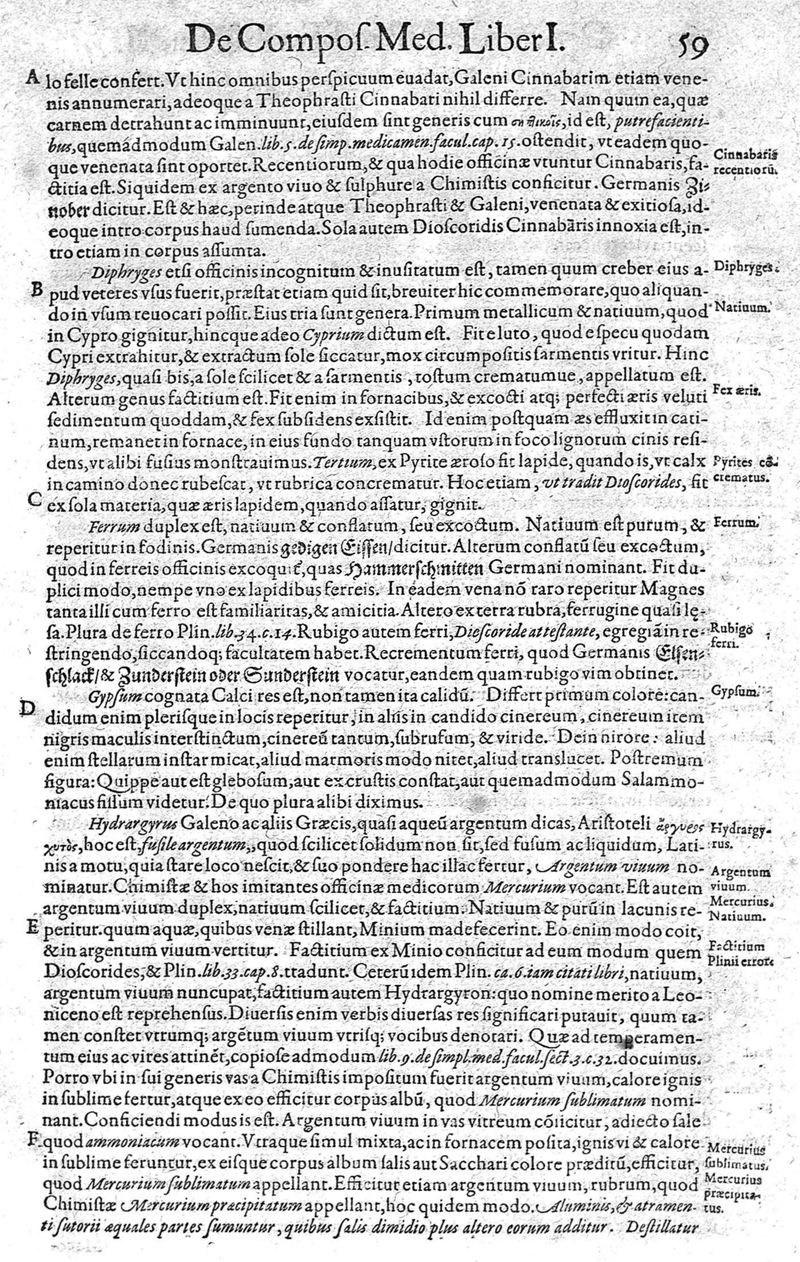 De Compos. Med. Liber I. 59
A lo felle confert. Vt hinc omnibus perspicuum euadat, Galeni Cinnabarim etiam vene-
nis annumerari, adeoque a Theophrasti Cinnabari nihil differre. Nam quum ea, quæ
carnem detrahunt ac imminuunt, eiusdem sint generis cum id est, putrefacienti-
bus, quemadmodum Galen. lib. 5. de simp. medicamen. facul. cap. 15. ostendit, vt eadem quo-
que venenata sint oportet. Recentiorum, & qua hodie officinæ vtuntur Cinnabaris, fa-
Cinnabaris
recentiorū.
ctitia est. Siquidem ex argento viuo & sulphure a Chimistis conficitur. Germanis Zi-
nober dicitur. Est & hæc, perinde atque Theophrasti & Galeni, venenata & exitiosa, id-
eoque intro corpus haud sumenda. Sola autem Dioscoridis Cinnabaris innoxia est, in-
tro etiam in corpus assumta.
Diphryges etsi officinis incognitum & inusitatum est, tamen quum creber eius a-
Diphryges.
B pud veteres vsus fuerit, præstat etiam quid sit, breuiter hic commemorare, quo aliquan-
do in vsum reuocari possit. Eius tria sunt genera. Primum metallicum & natiuum, quod
Natiuum.
in Cypro gignitur, hincque adeo Cyprium dictum est. Fit e luto, quod e specu quodam
Cypri extrahitur, & extractum sole siccatur, mox circumpositis sarmentis vritur. Hinc
Diphryges, quasi bis, a sole scilicet & a sarmentis, tostum crematumue, appellatum est.
Alterum genus factitium est. Fit enim in fornacibus, & excocti atq; perfecti æris veluti
Fex æris.
sedimentum quoddam, & fex subsidens exsistit. Id enim postquam æs effluxit in cati-
num, remanet in fornace, in eius fundo tanquam vstorum in foco lignorum cinis resi-
dens, vt alibi fusius monstrauimus. Tertium, ex Pyrite æroso fit lapide, quando is, vt calx
Pyrites con
crematus.
in camino donec rubescat, vt rubrica concrematur. Hoc etiam, vt tradit Dioscorides, fit
C ex sola materia, quæ æris lapidem, quando assatur, gignit.
Ferrum duplex est, natiuum & conflatum, seu excoctum. Natiuum est purum, &
Ferrum.
reperitur in fodinis. Germanis gedigen Eissen/ dicitur. Alterum conflatū seu excoctum,
quod in ferreis officinis excoquit, quas Hammerschmitten Germani nominant. Fit du-
plici modo, nempe vno ex lapidibus ferreis. In eadem vena nō raro reperitur Magnes
tanta illi cum ferro est familiaritas, & amicitia. Altero ex terra rubra, ferrugine quasi lę-
sa. Plura de ferro Plin. lib. 34. c. 14. Rubigo autem ferri, Dioscoride attestante, egregiā in re-
Rubigo
ferri.
stringendo, siccandoq; facultatem habet. Recrementum ferri, quod Germanis Eisen-
schlack/ & Zunderstein oder Sunderstein vocatur, eandem quam rubigo vim obtinet.
Gypsum cognata Calci res est, non tamen ita calidū. Differt primum colore: can-
Gypsum.
D didum enim plerisque in locis reperitur, in aliis in candido cinereum, cinereum item
nigris maculis interstinctum, cinereū tantum, subrufum, & viride. Dein nirore: aliud
enim stellarum instar micat, aliud marmoris modo nitet, aliud translucet. Postremum
figura: Quippe aut est glebosum, aut ex crustis constat, aut quemadmodum Salammo-
niacus fissum videtur. De quo plura alibi diximus.
Hydrargyrus Galeno ac aliis Græcis, quasi aqueū argentum dicas, Aristoteli ἄργυρος
Hydrargy-
rus.
χυτὸς, hoc est, fusile argentum, quod scilicet solidum non sit, sed fusum ac liquidum, Lati-
nis a motu, quia stare loco nescit, & suo pondere hac illac fertur, Argentum viuum no-
Argentum
viuum.
minatur. Chimistæ & hos imitantes officinæ medicorum Mercurium vocant. Est autem
argentum viuum duplex, natiuum scilicet, & factitium. Natiuū & purū in lacunis re-
Mercurius.
Natiuum.
E peritur. quum aquæ, quibus venæ stillant, Minium madefecerint. Eo enim modo coit,
& in argentum viuum vertitur. Factitium ex Minio conficitur ad eum modum quem
Factitium
Plinii error.
Dioscorides, & Plin. lib. 33. cap. 8. tradunt. Ceterū idem Plin. ca. 6. iam citati libri, natiuum,
argentum viuum nuncupat, factitium autem Hydrargyron: quo nomine merito a Leo-
niceno est reprehensus. Diuersis enim verbis diuersas res significari putauit, quum ta-
men constet vtrumq; argētum viuum vtrisq; vocibus denotari. Quæ ad temperamen-
tum eius ac vires attinēt, copiose admodum lib. 9. de simpl. med. facul. sect. 3. c. 32. docuimus.
Porro vbi in sui generis vas a Chimistis impositum fuerit argentum viuum, calore ignis
in sublime fertur, atque ex eo efficitur corpus albū, quod Mercurium sublimatum nomi-
nant. Conficiendi modus is est. Argentum viuum in vas vitreum cōiicitur, adiecto sale
F quod ammoniacum vocant. Vtraque simul mixta, ac in fornacem posita, ignis vi & calore
Mercurius
sublimatus.
in sublime feruntur, ex eisque corpus album salis aut Sacchari colore præditū, efficitur,
quod Mercurium sublimatum appellant. Efficitur etiam argentum viuum, rubrum, quod
Mercurius
præcipita-
tus.
Chimistæ Mercurium præcipitatum appellant, hoc quidem modo. Aluminis, & atramen-
ti sutorii æquales partes sumuntur, quibus salis dimidio plus altero eorum additur. Destillatur